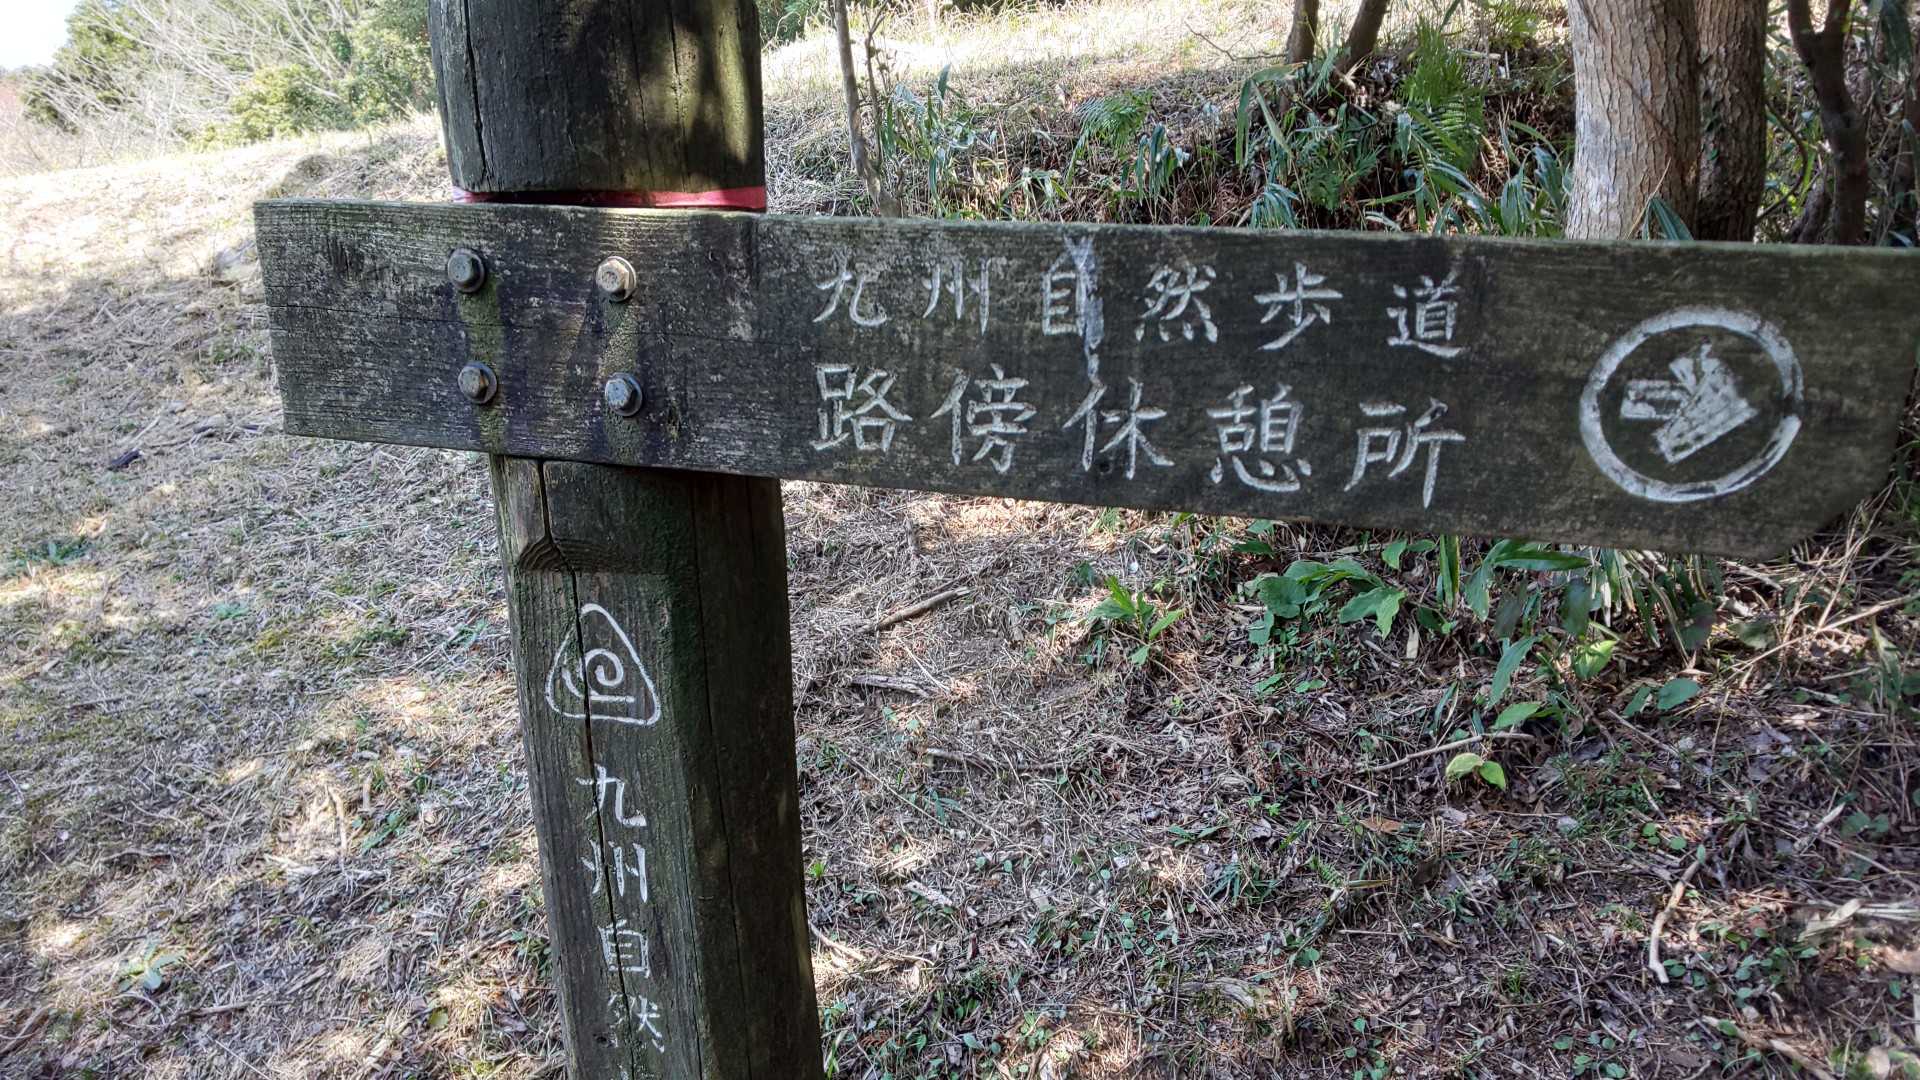 九州自然歩道
路傍休憩所
九州自然